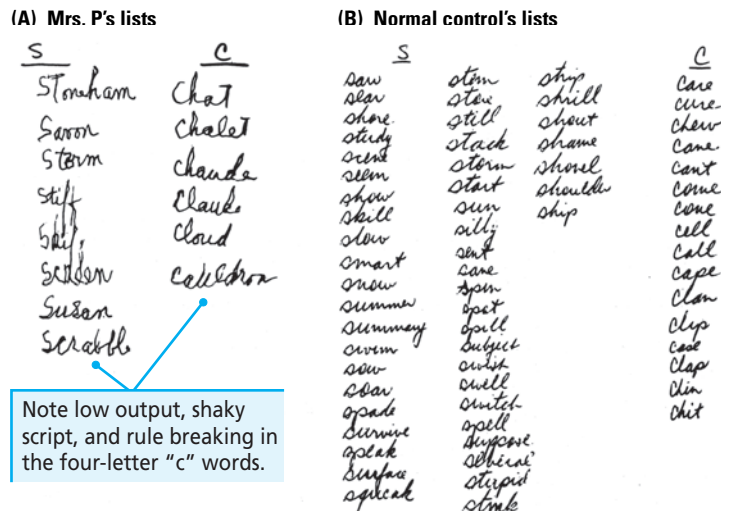 (A) Mrs. P's lists
S
Stoneham
Saron
Storm
Stift
Scrabble
Susan
C
Chat
Chalet
Chaude
Claude
Cloud
Cauldron
Note low output, shaky
script, and rule breaking in
the four-letter "c" words.
(B) Normal control's lists
S
saw
slav
shore
study
scene
seem
show
skill
slow
smart
snow
summer
summary
swim
sow
soar
spade
survive
speak
surface
squeak
stem
stew
still
stack
storm
start
sun
silly
sent
sane
spin
spat
spill
subject
swish
swell
switch
spell
suppose
several
stupid
stink
strip
shrill
shout
shame
shovel
shoulder
ship
C
care
cure
chew
cane
cant
come
cone
cell
call
cape
clan
clip
case
clap
chin
chit